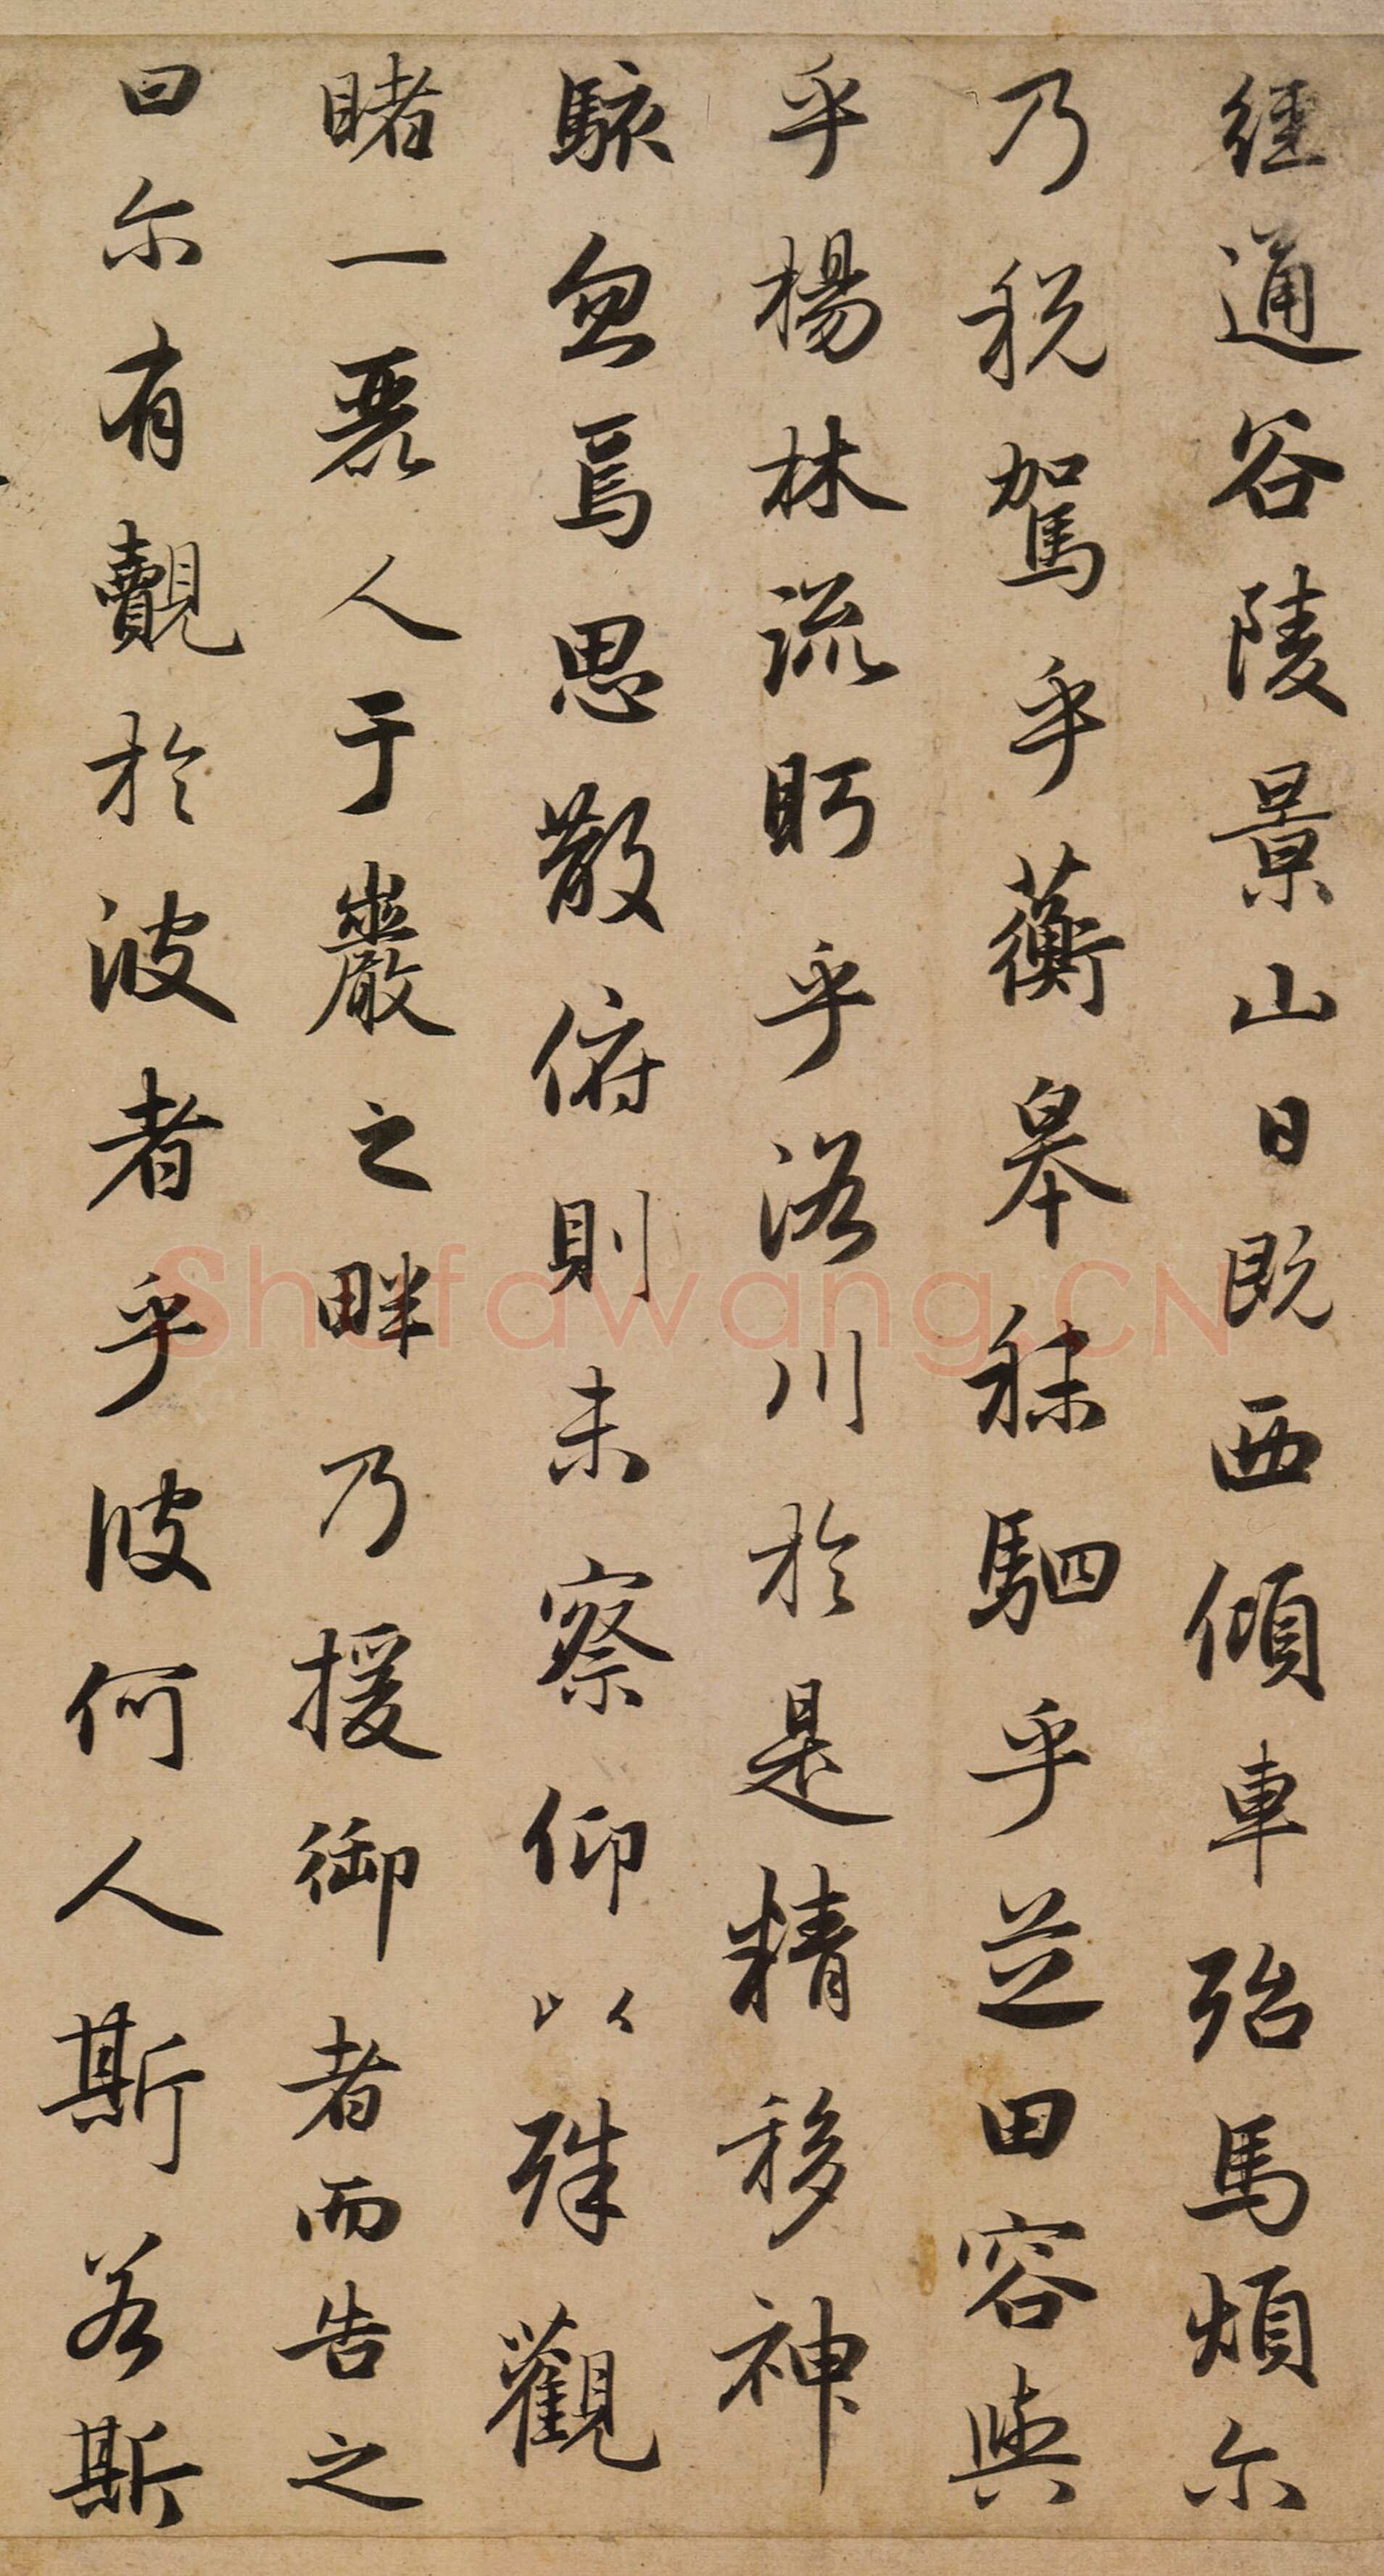 經通谷陵景山日既西傾車殆馬煩尓
乃稅駕乎蘅皋秣駟乎芝田容與
乎楊林流眄乎洛川於是精移神
駭忽焉思散俯則未察仰以殊觀
睹一麗人于巖之畔乃援御者而告之
曰尓有覿於彼者乎彼何人斯若斯
Shufawang.CN